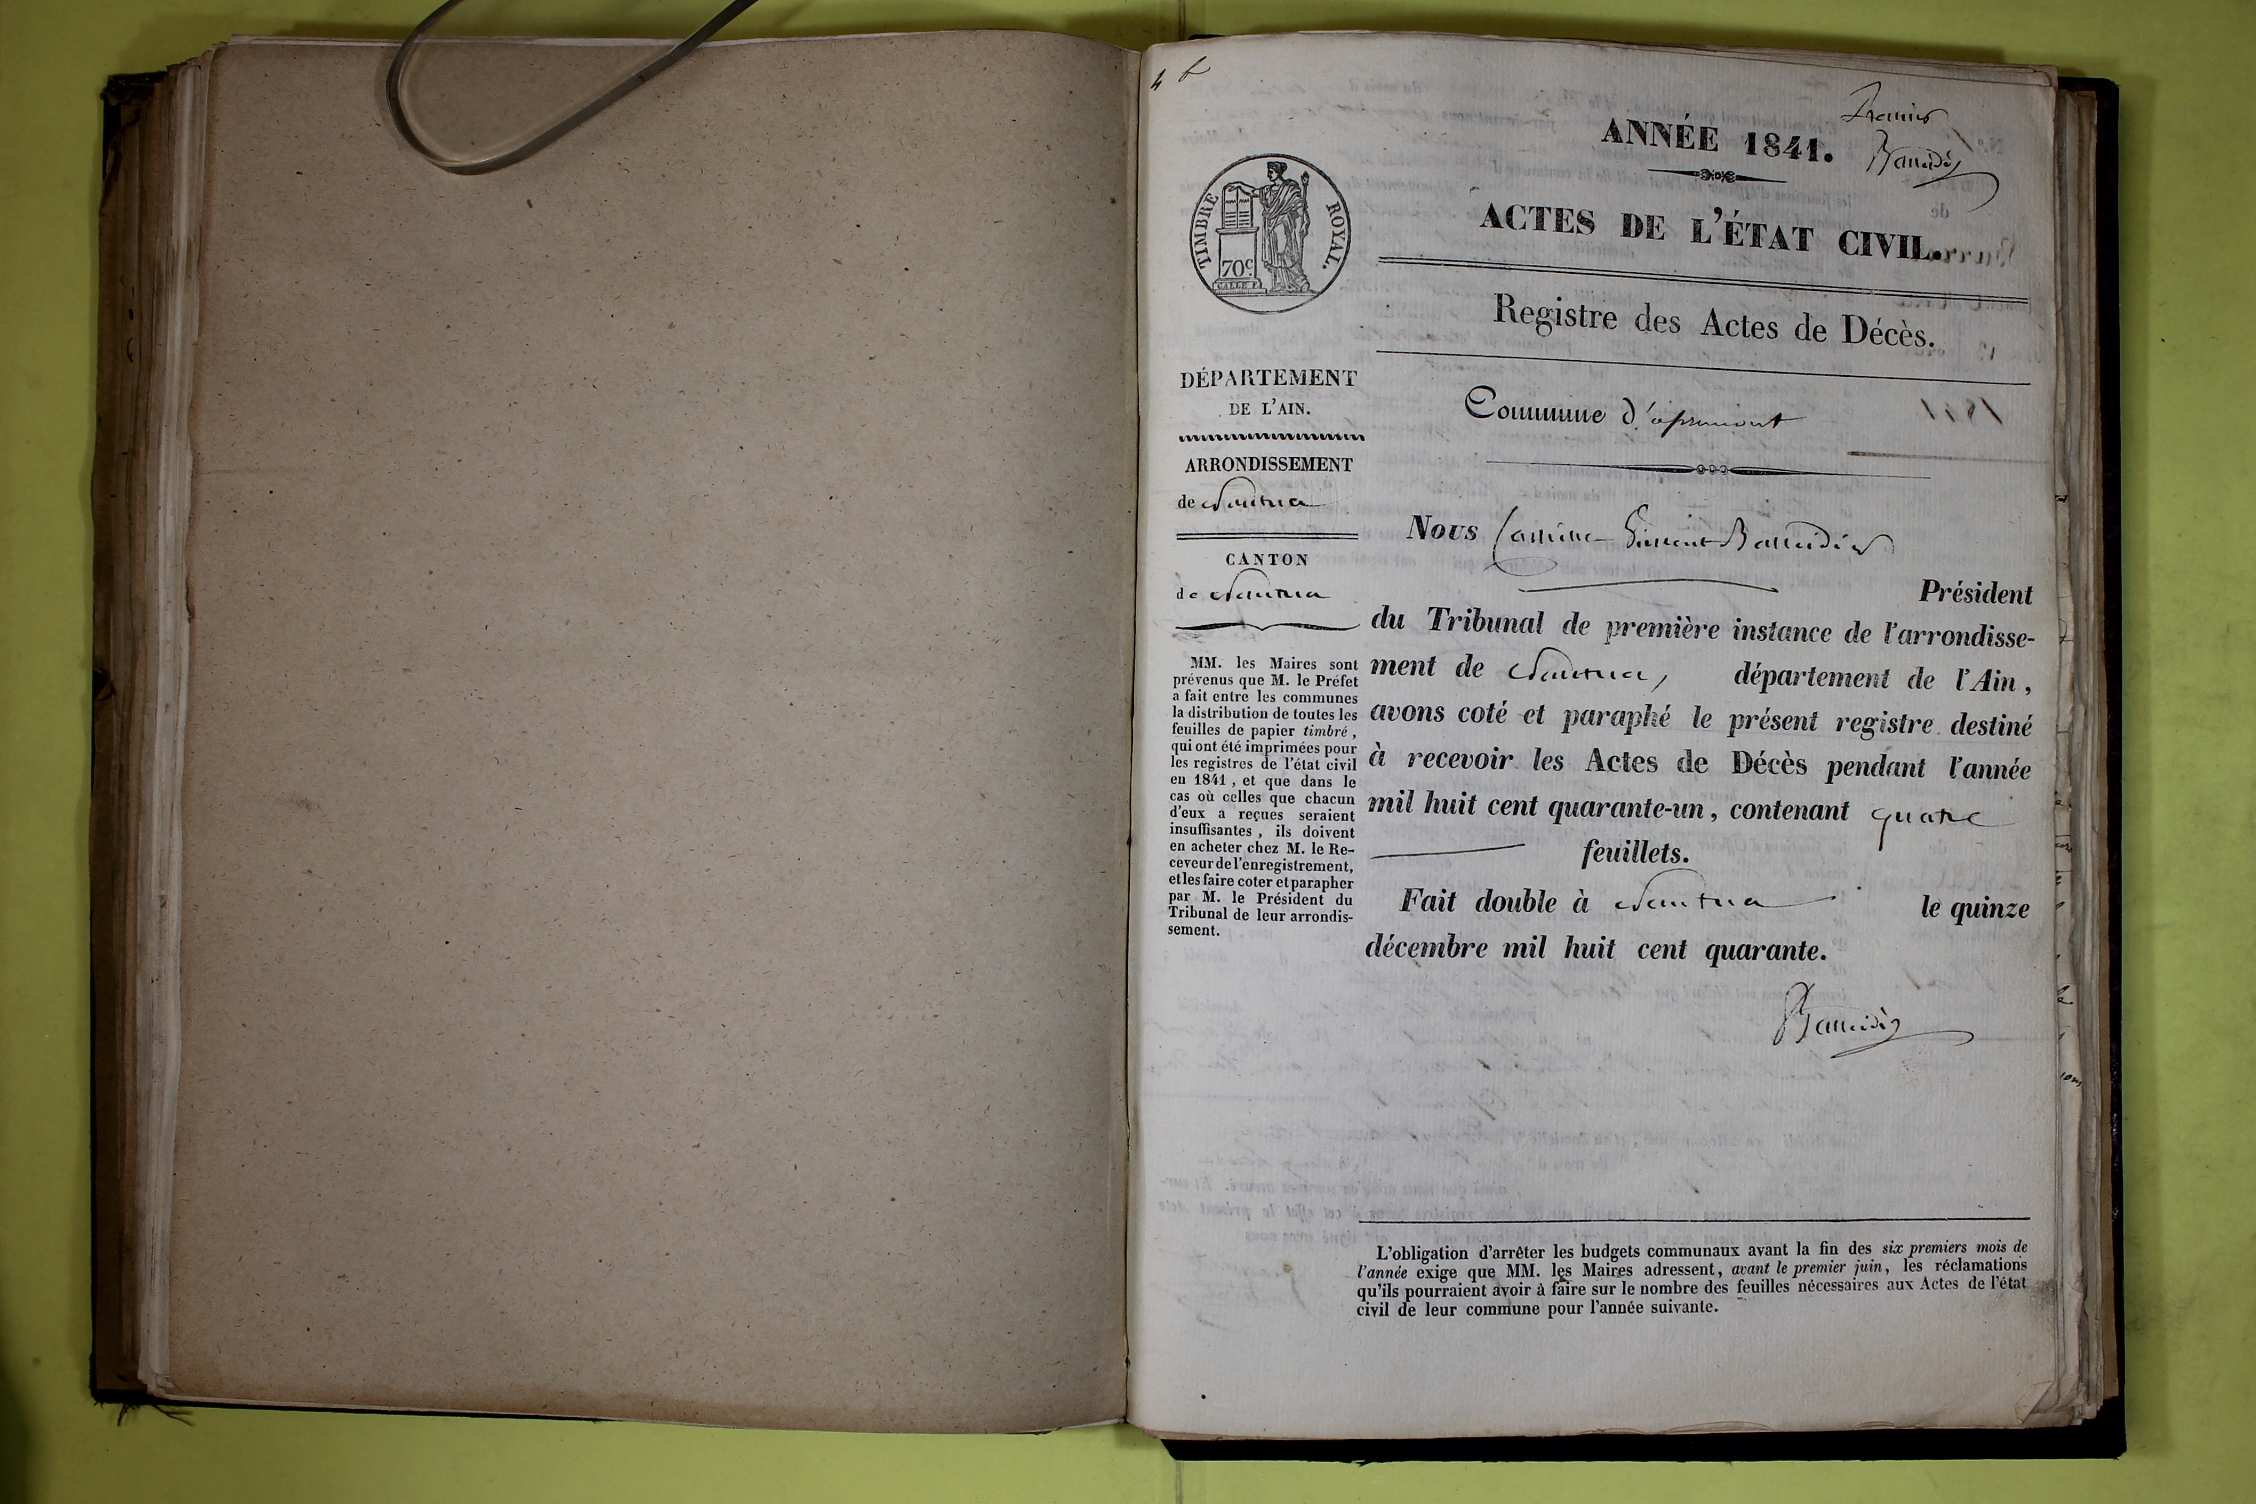 4 b
Premier
ANNÉE 1841.
Baudin
ACTES DE L'ÉTAT CIVIL.
TIMBRE ROYAL.
70c
Registre des Actes de Décès.
DÉPARTEMENT
DE L'AIN.
ARRONDISSEMENT
de Nantua
CANTON
de Nantua
MM. les Maires sont
prévenus que M. le Préfet
a fait entre les communes
la distribution de toutes les
feuilles de papier timbré,
qui ont été imprimées pour
les registres de l'état civil
en 1841, et que dans le
cas où celles que chacun
d'eux a reçues seraient
insuffisantes, ils doivent
en acheter chez M. le Re-
ceveur de l'enregistrement,
et les faire coter et parapher
par M. le Président du
Tribunal de leur arrondis-
sement.
Commune d'apremont
Nous
Président
du Tribunal de première instance de l'arrondisse-
ment de Nantua, département de l'Ain,
avons coté et paraphé le présent registre destiné
à recevoir les Actes de Décès pendant l'année
mil huit cent quarante-un, contenant quatre
feuillets.
Fait double à Nantua le quinze
décembre mil huit cent quarante.
L'obligation d'arrêter les budgets communaux avant la fin des six premiers mois de
l'année exige que MM. les Maires adressent, avant le premier juin, les réclamations
qu'ils pourraient avoir à faire sur le nombre des feuilles nécessaires aux Actes de l'état
civil de leur commune pour l'année suivante.